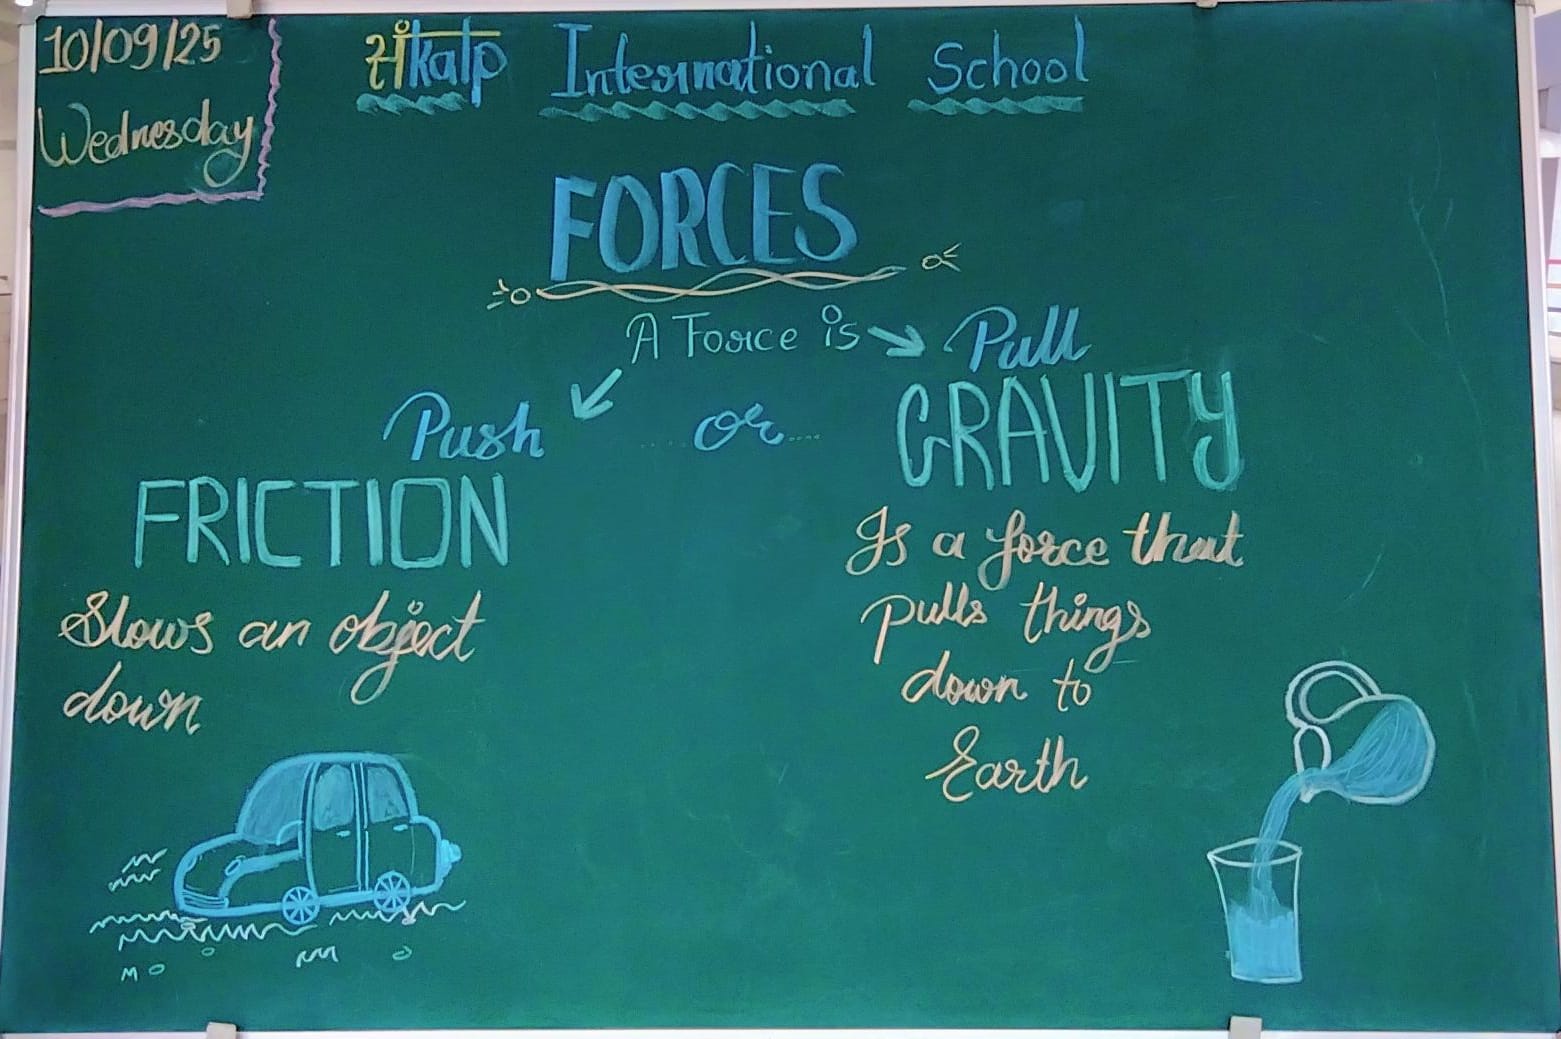 10/09/25
Wednesday
संkalp International School
FORCES
A Force is
Pull
Push
or
GRAVITY
FRICTION
Is a force that
pulls things
down to
Earth
Slows an object
down